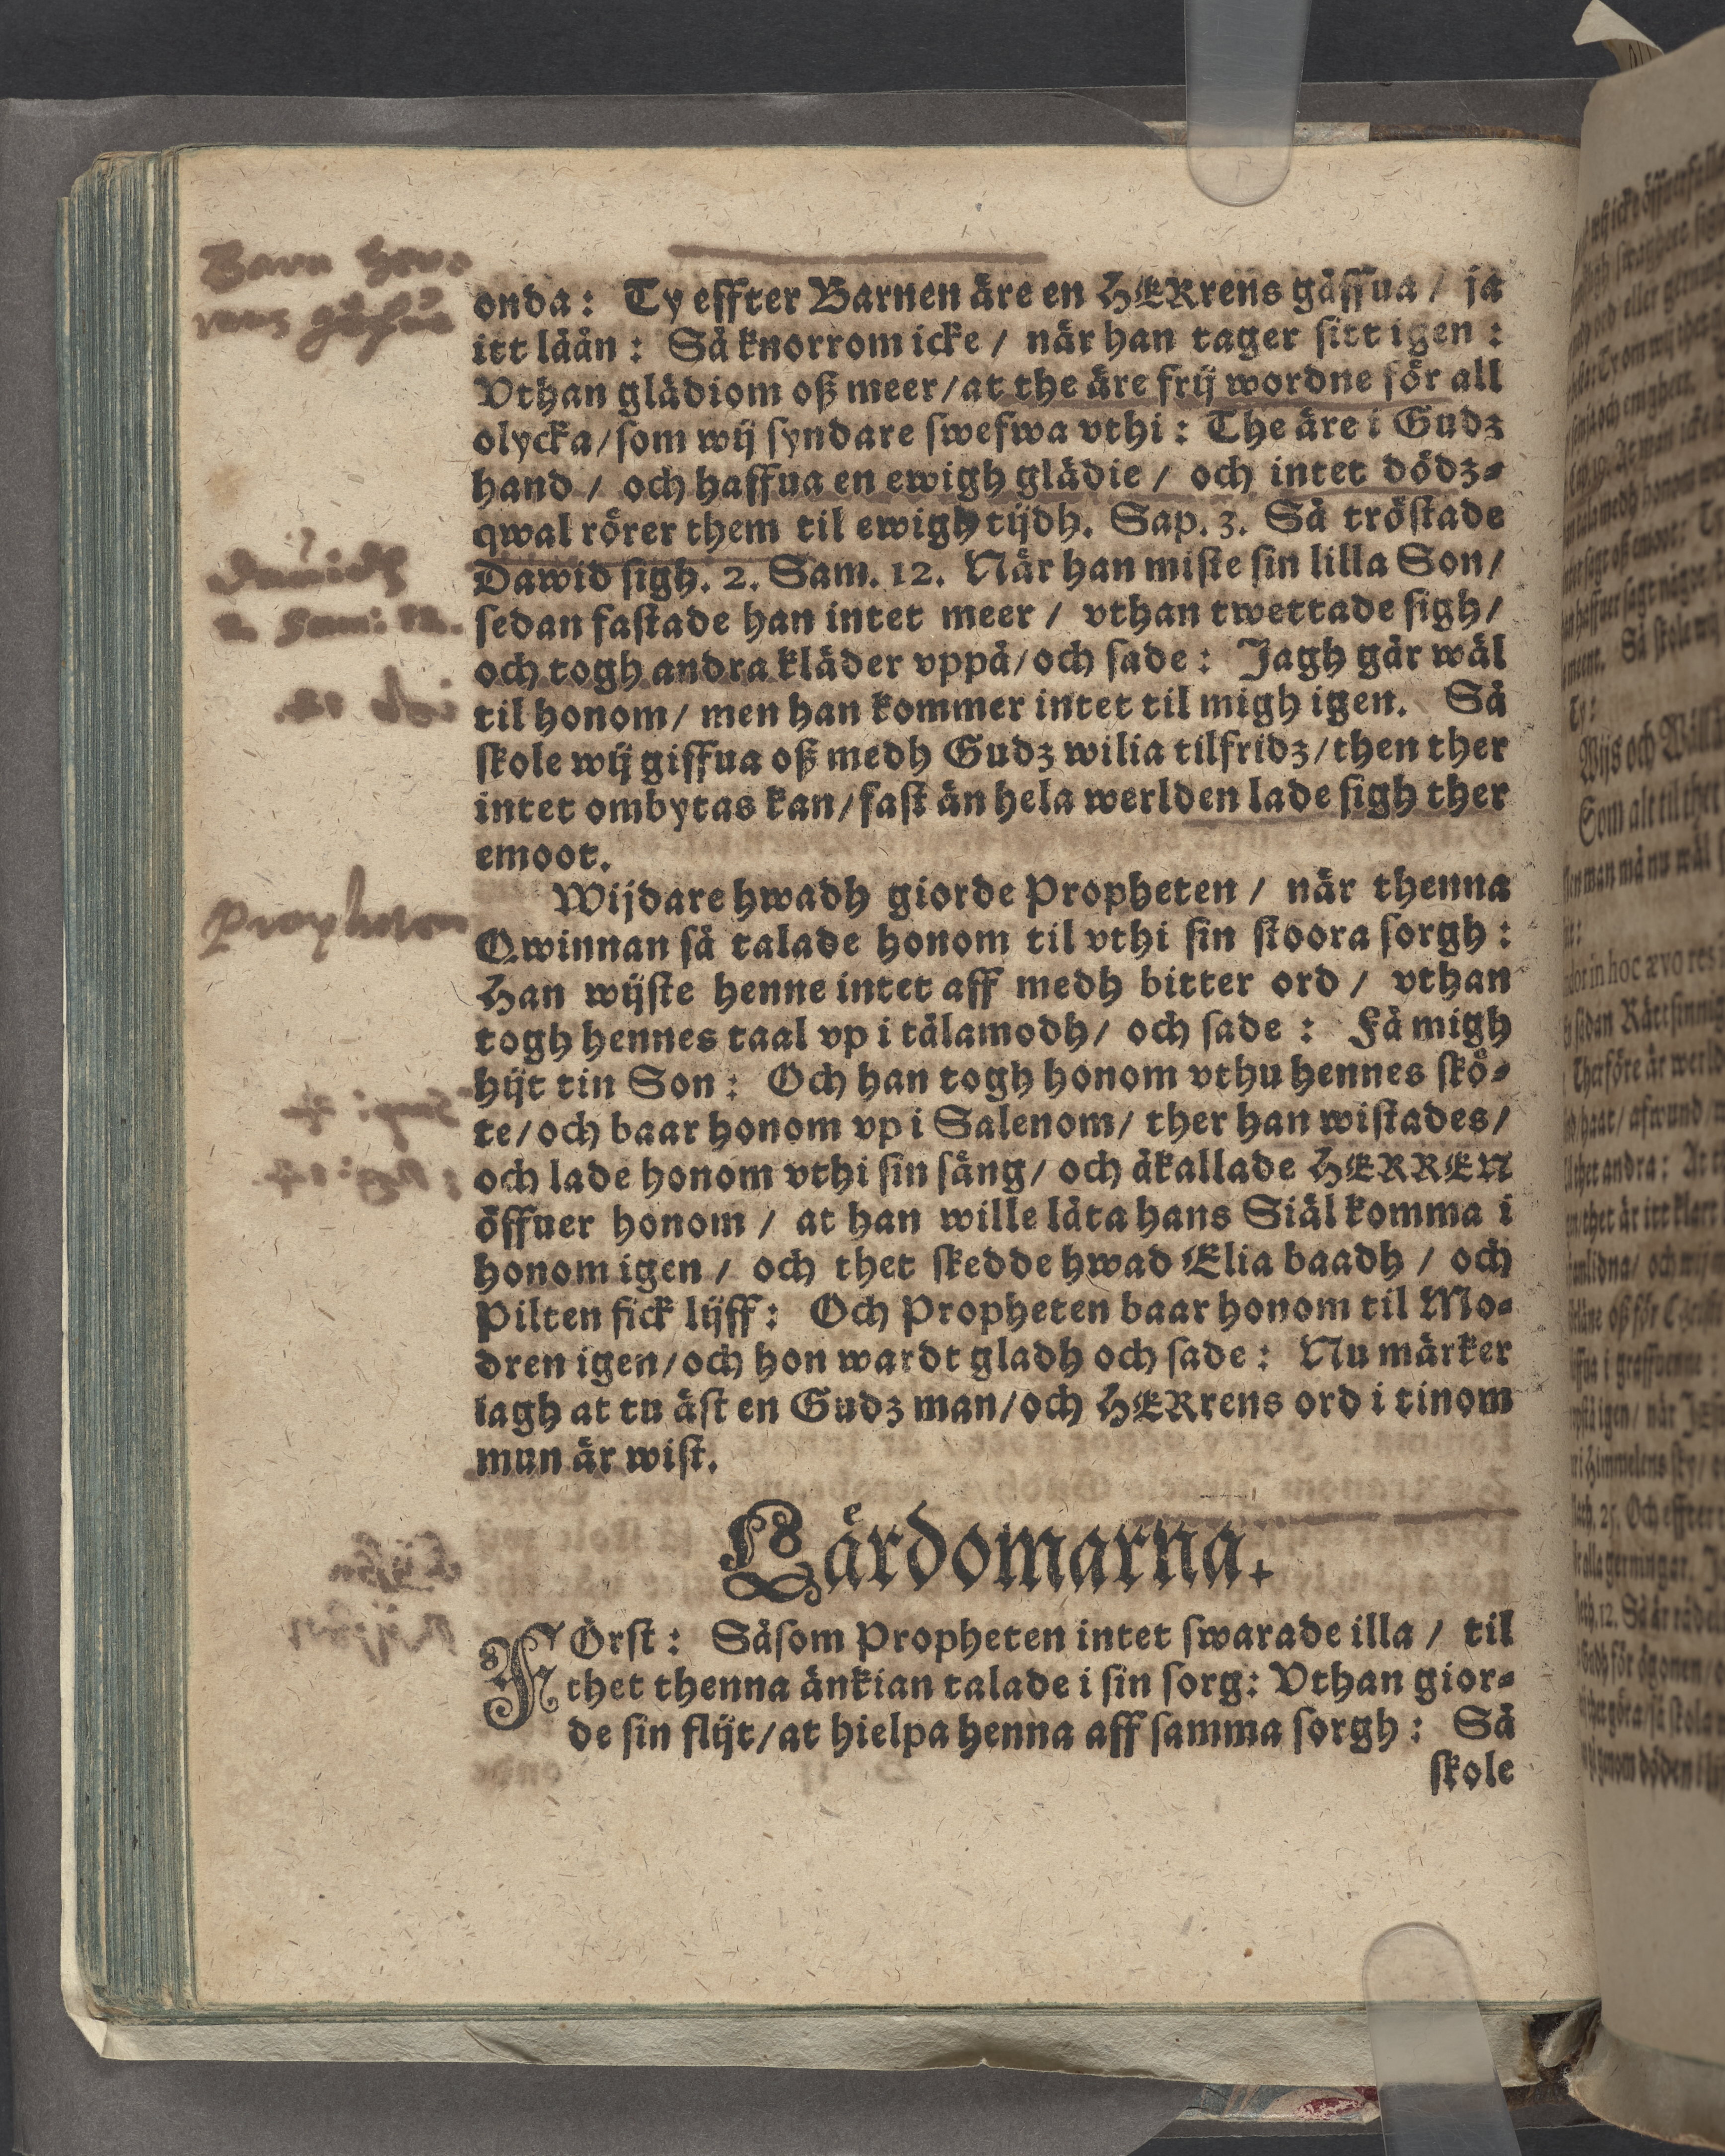 onda: Ty effter Barnen äre en HERrens gåffua / ja
itt låån: Så knorrom icke / när han tager sitt igen:
Vthan glädiom oß meer / at the äre frij wordne för all
olycka / som wij syndare swefwa vthi: The äre i Gudz
hand / och haffua en ewigh glädie / och intet dödz-
qwal rörer them til ewigh tijdh. Sap. 3. Så tröstade
Dawid sigh. 2. Sam. 12. När han miste sin lilla Son /
sedan fastade han intet meer / vthan twettade sigh /
och togh andra kläder vppå / och sade: Jagh går wäl
til honom / men han kommer intet til migh igen. Så
skole wij giffua oß medh Gudz wilia tilfridz / then ther
intet ombytas kan / fast än hela werlden lade sigh ther
emoot.
Wijdare hwadh giorde Propheten / när thenna
Qwinnan så talade honom til vthi sin stoora sorgh:
Han wijste henne intet aff medh bitter ord / vthan
togh hennes taal vp i tålamodh / och sade: Få migh
hijt tin Son: Och han togh honom vthu hennes skö-
te / och baar honom vp i Salenom / ther han wistades /
och lade honom vthi sin säng / och åkallade HERREN
öffuer honom / at han wille låta hans Siäl komma i
honom igen / och thet skedde hwad Elia baadh / och
Pilten fick lijff: Och Propheten baar honom til Mo-
dren igen / och hon wardt gladh och sade: Nu märker
iagh at tu äst en Gudz man / och HERrens ord i tinom
mun är wist.
Lärdomarna.
FÖrst: Såsom Propheten intet swarade illa / til
thet thenna änkian talade i sin sorg: Vthan gior-
de sin flijt / at hielpa henna aff samma sorgh: Så
skole
Dauidh
2 Sam: 12.
Propheten